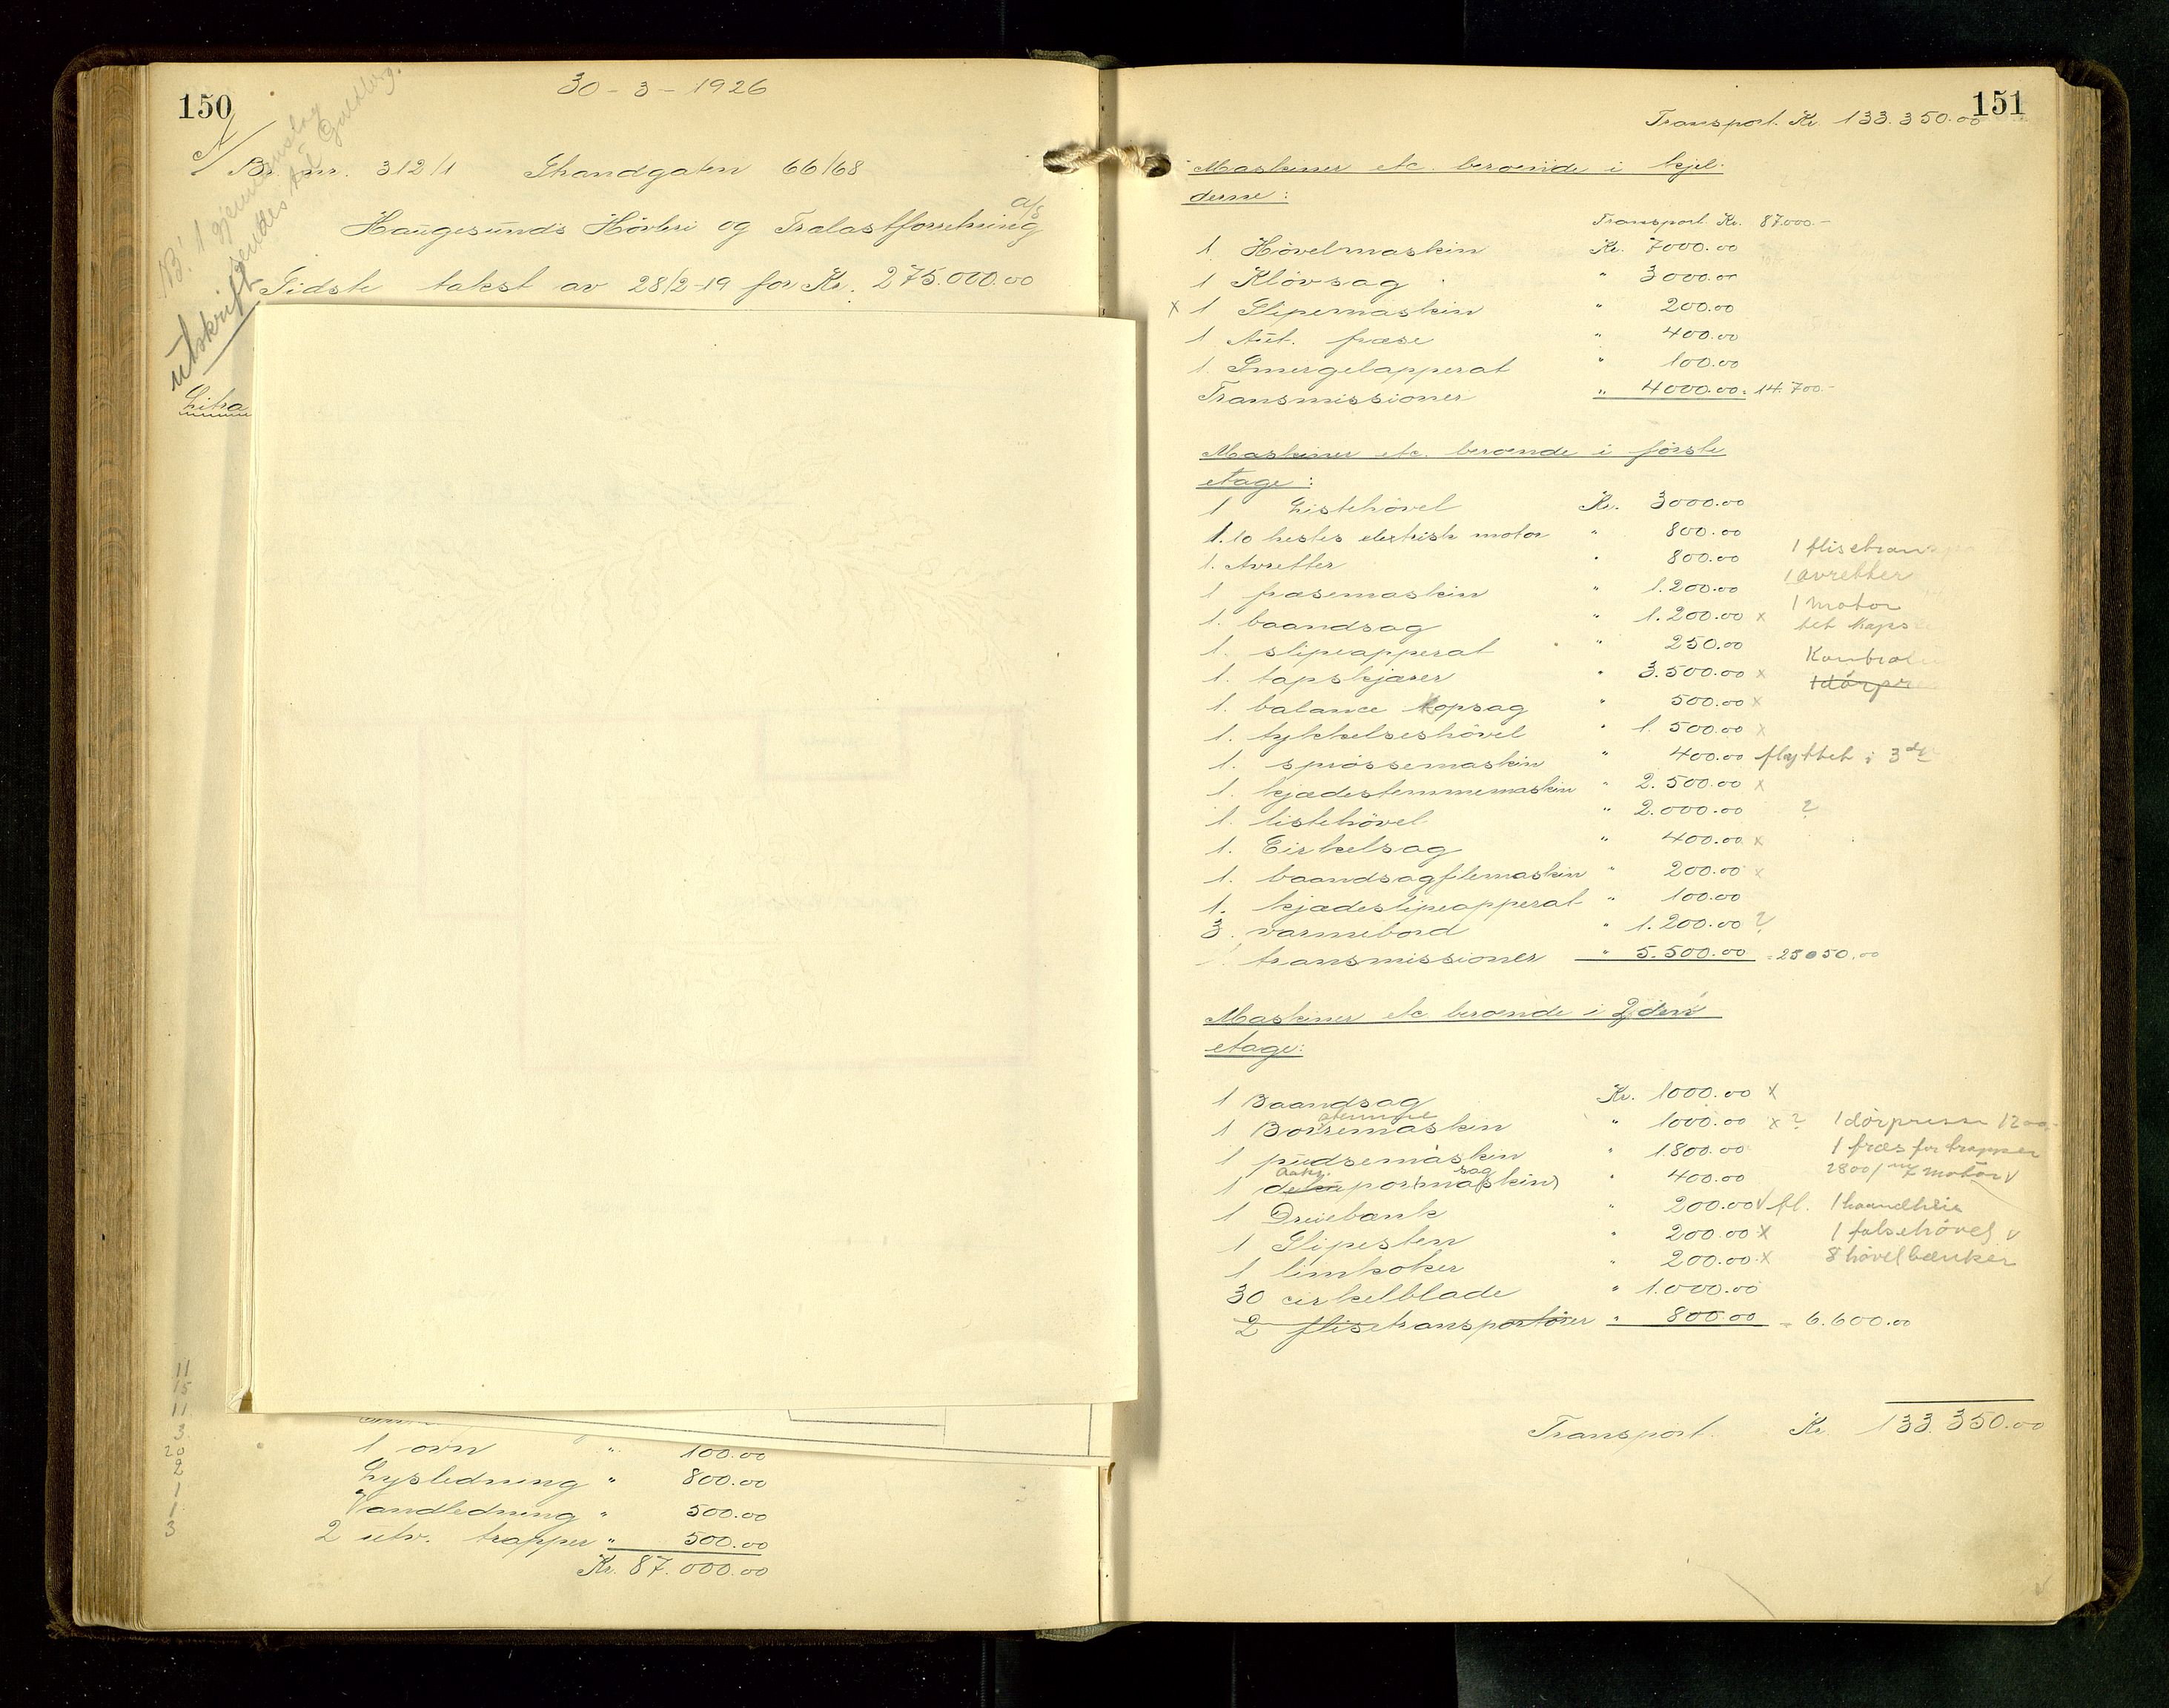 150
30 - 3 - 1926
Br. nr. 312/1 Strandgaten 66/68
a/s
Haugesunds Hövleri og Trælastforretning
Sidste takst av 28/2-19 for Kr. 275.000.00
B! 1 gjennemslag
sendes til Goldberg.
utskrift
Litra
11
15
11
3
20
2
1
1
3
1 ovn " 100.00
Lysledning " 800.00
Vandledning " 500.00
2 utv. trapper " 500.00
Kr. 87.000.00
151
Transport. Kr. 133.350.00
Maskiner etc. beroende i kjel-
derne:
Transport Kr. 87.000.-
1 Hövelmaskin Kr. 7000.00
1 Klövsag " 3000.00
x 1 Slipemaskin " 200.00
1 Aut. fræse " 400.00
1 Smergelapperat " 100.00
Transmissioner " 4000.00 = 14.700.-
Maskiner etc. beroende i förste
etage:
1 Listehövel Kr. 3000.00
1. 10 hestes elektrisk motor " 800.00
1. Avretter " 800.00 1 flisetran
1 fræsemaskin " 1.200.00 1 avretter
1. baandsag " 1.200.00 x 1 motor
1. slipeapperat " 250.00 tet Kaps
1. tapskjærer " 3.500.00 x
1. balance Kopsag " 500.00 x
1. tykkelseshövel " 1.500.00 x
1. sprossemaskin " 400.00 flyttet i 3de
1. kjædestemmemaskin " 2.500.00 x
1. listehövel " 2.000.00 ?
1. Cirkelsag " 400.00 x
1. baandsagfilemaskin " 200.00 x
1. kjædeslipeapperat " 100.00
3. varmebord " 1.200.00 ?
transmissioner " 5.500.00 = 25050.00
Maskiner etc beroende i 2den
etage:
1 Baandsag Kr. 1000.00 x
stemme
1 Borremaskin " 1000.00 x ? 1 dörpresse 1200.-
1 pudsemaskin " 1.800.00 1 fræs for trapper
sag
1 maskin " 400.00 1800/ m/ motor v
1 Dreiebænk " 200.00 v fl. 1 haandheis
1 Slipesten " 200.00 x 1 falsehövel v
1 limkoker " 200.00 x 8 hövelbænker
30 cirkelblade " 1.000.00
2 flisetransportører " 800.00 = 6.600.00
Transport. Kr. 133.350.00